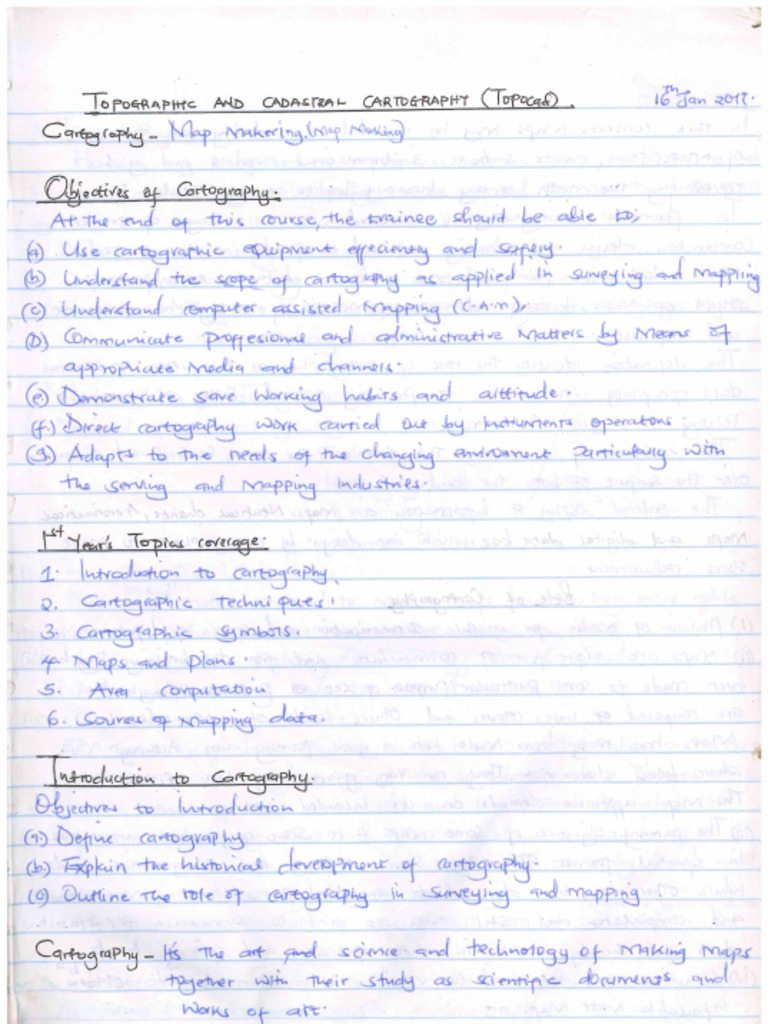 TOPOGRAPHIC AND CADASTRAL CARTOGRAPHY (TOPOCAD).
16th Jan 2017.
Cartography - Map Makering, (Map Making)
Objectives of Cartography:-
At the end of this course, the trainee should be able to;
(a) Use cartographic equipment effeciently and safety.
(b) Understand the scope of cartography as applied in surveying and Mapping
(c) Understand computer assisted Mapping (C.A.M).
(D) Communicate proffesional and administrative Matters by Means of
appropriate Media and channels.
(e) Demonstrate save working habits and altitude.
(f.) Direct cartography work carried out by Instruments operators.
(g) Adapts to the needs of the changing environment particularly with
the serving and Mapping Industries.
1st Year's Topics coverage:
1. Introduction to cartography.
2. Cartographic techniques.
3. Cartographic symbols.
4. Maps and plans.
5. Area computation
6. Sources of Mapping data.
Introduction to Cartography.
Objectives to Introduction
(a.) Define cartography
(b.) Explain the historical development of cartography.
(c) Outline the role of cartography in surveying and mapping
Cartography - Its the art and science and technology of Making Maps
together with their study as scientific documents and
works of art.